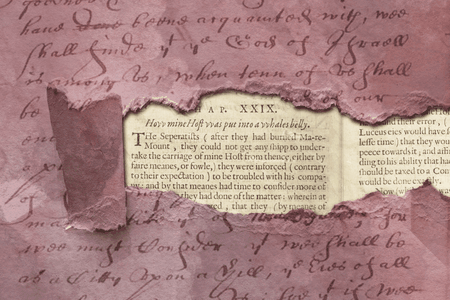 have been acquainted with, wee
shall finde yt ye God of Israell
is among us, when tenn of us shall
be
our
HAP. XXIX.
How mine Host was put into a whales belly.
THe Seperatists (after they had burned Ma-re-
Mount, they could not get any shipp to under-
take the carriage of mine Host from thence, either by
faire meanes, or fowle,) they were inforced (contrary
to their expectation) to be troubled with his compa-
and by that meanes had time to consider more of
they had done of the matter: wherein at
rd, that they (by meanes of
and their error, (
Luceus eies would have s
lesse time) that they wou
peece towards it and affi
ding to his ability that ha
should be taxed to a Con
would be done exactly.
of
for
wee must Consider yt wee shall be
as a Citty upon a Hill, ye eies of all